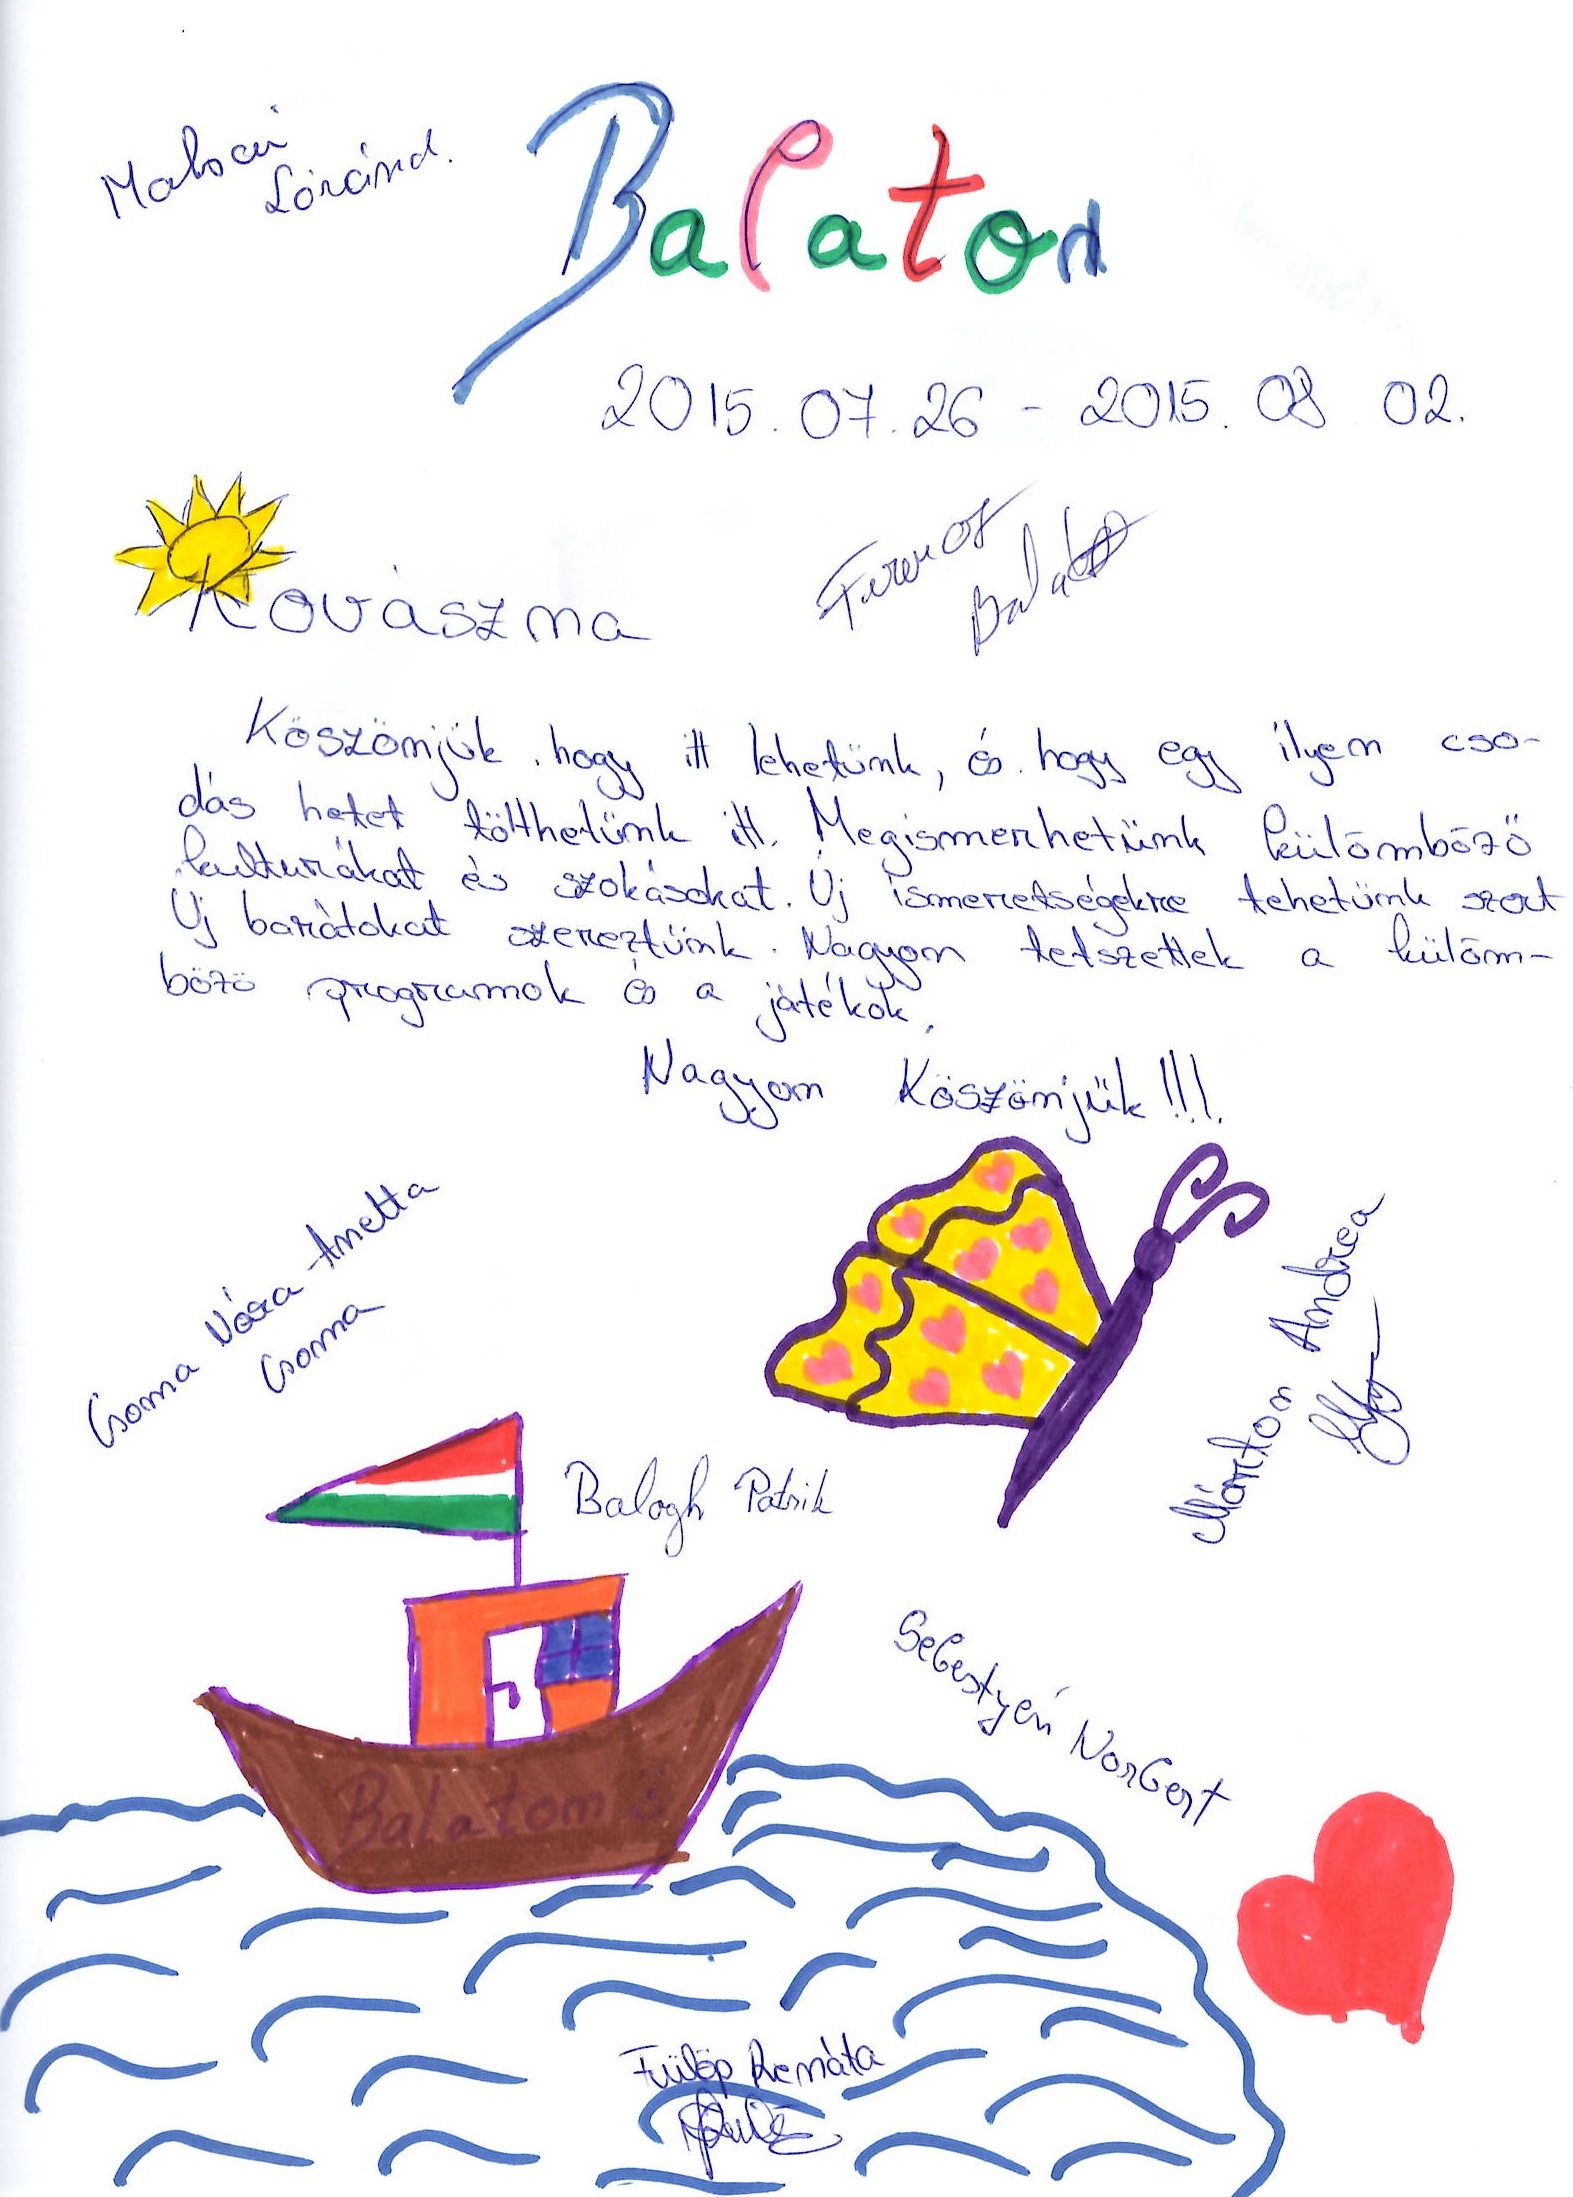 Balaton
Lóránd.
2015.07.26 - 2015.08 02.
Kovászna
Ferencz
Köszönjük, hogy itt lehetünk, és hogy egy ilyen cso-
dás hetet tölthetünk itt. Megismerhetünk külömböző
kulturákat és szokásokat. Új ismeretségekre tehetünk szert
Új barátokat szereztünk. Nagyon tetszettek a külöm-
böző programok és a játékok.
Nagyon Köszönjük!!!
Csoma Nóra-Anetta
Csoma
Márton Andrea
Balogh Patrik
Sebestyén Norbert
Balaton
Fülöp Renáta